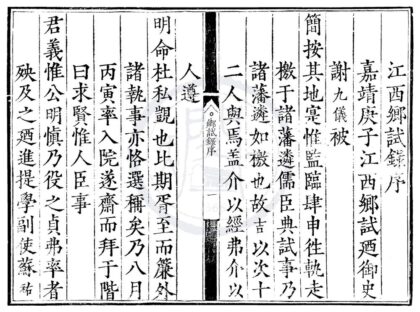 江西鄉試錄序
嘉靖庚子江西鄉試廼御史
謝九儀被
簡按其地寔惟監臨肆申徃軌走
檄于諸藩遴儒臣典試事乃
諸藩遴如檄也故吉以次十
二人與焉盖介以經弗介以
鄉試錄序
一
人遵
明命杜私覿也比期胥至而簾外
諸執事亦恪選稱矣乃八月
丙寅率入院遂齋而拜于階
曰求賢惟人臣事
君義惟公明慎乃役之貞弗率者
殃及之廼進提學副使蘇祐